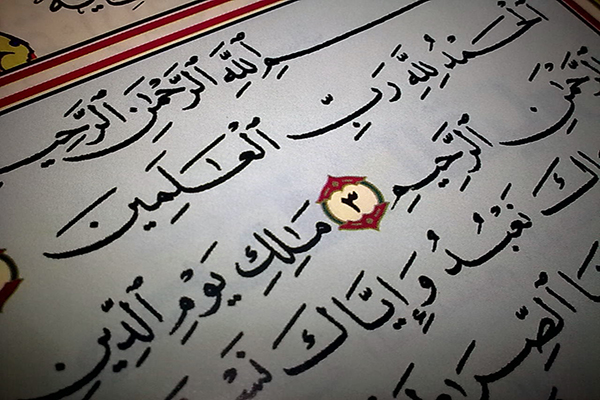 ـسْمِ ٱللَّهِ ٱلرَّحْمَٰنِ ٱلرَّحِيـ
ٱلْحَمْدُ لِلَّهِ رَبِّ ٱلْعَٰلَمِينَ
ٱلرَّحْمَٰنِ ٱلرَّحِيمِ ٣ مَٰلِكِ يَوْمِ ٱلدِّينِ
ـاكَ نَعْبُدُ وَإِيَّاكَ نَسْـ
ـنَا ٱلصِّرَٰ